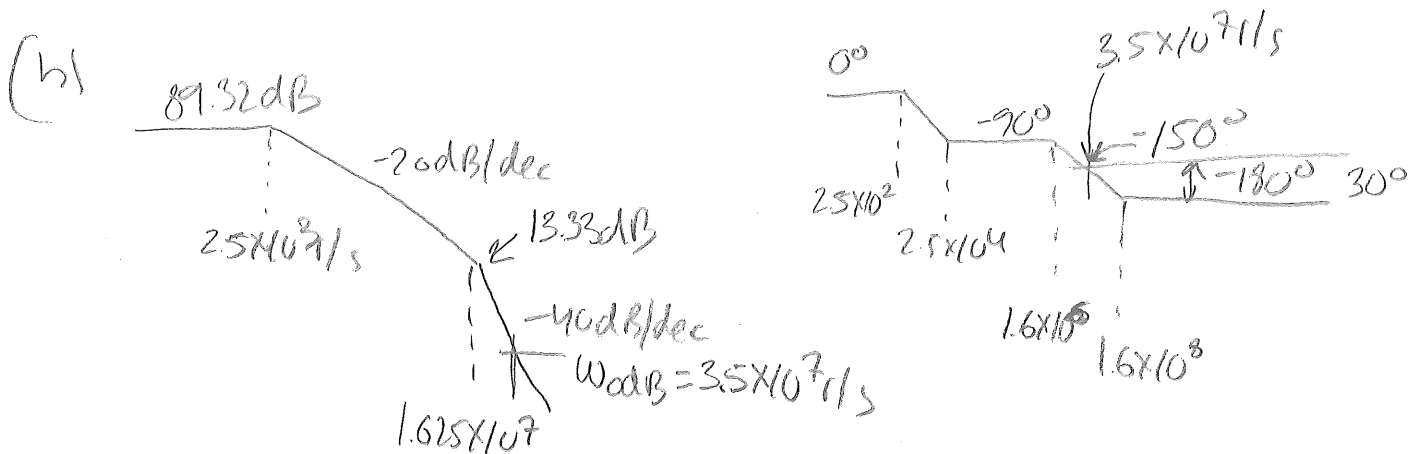 (b)
89.32dB
-20dB/dec
2.5X10³r/s
13.33dB
-40dB/dec
ω0dB = 3.5X10⁷r/s
1.625X10⁷
0°
3.5X10⁷r/s
-90°
-150°
-180°
30°
2.5X10²
2.5X10⁴
1.6X10⁶
1.6X10⁸